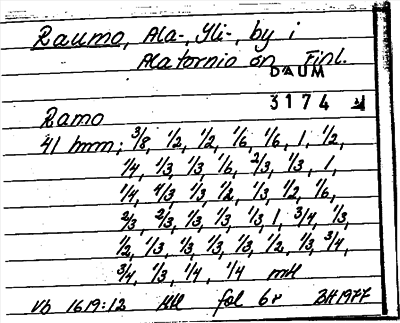 Raumo, Ala-, Yli-, by i
Alatornio sn, Finl.
DAUM
3174
Ramo
41 hmm; 3/8, 1/2, 1/2, 1/6, 1/6, 1, 1/2,
1/4, 1/3, 1/3, 1/6, 2/3, 1/3, 1,
1/4, 4/3, 1/3, 1/2, 1/3, 1/2, 1/6,
2/3, 2/3, 1/3, 1/3, 1/3, 1, 3/4, 1/3,
1/2, 1/3, 1/3, 1/3, 1/3, 1/2, 1/3, 3/4,
3/4, 1/3, 1/4, 1/4 mtl
Vb 1619:12 fol 6r BH 1977